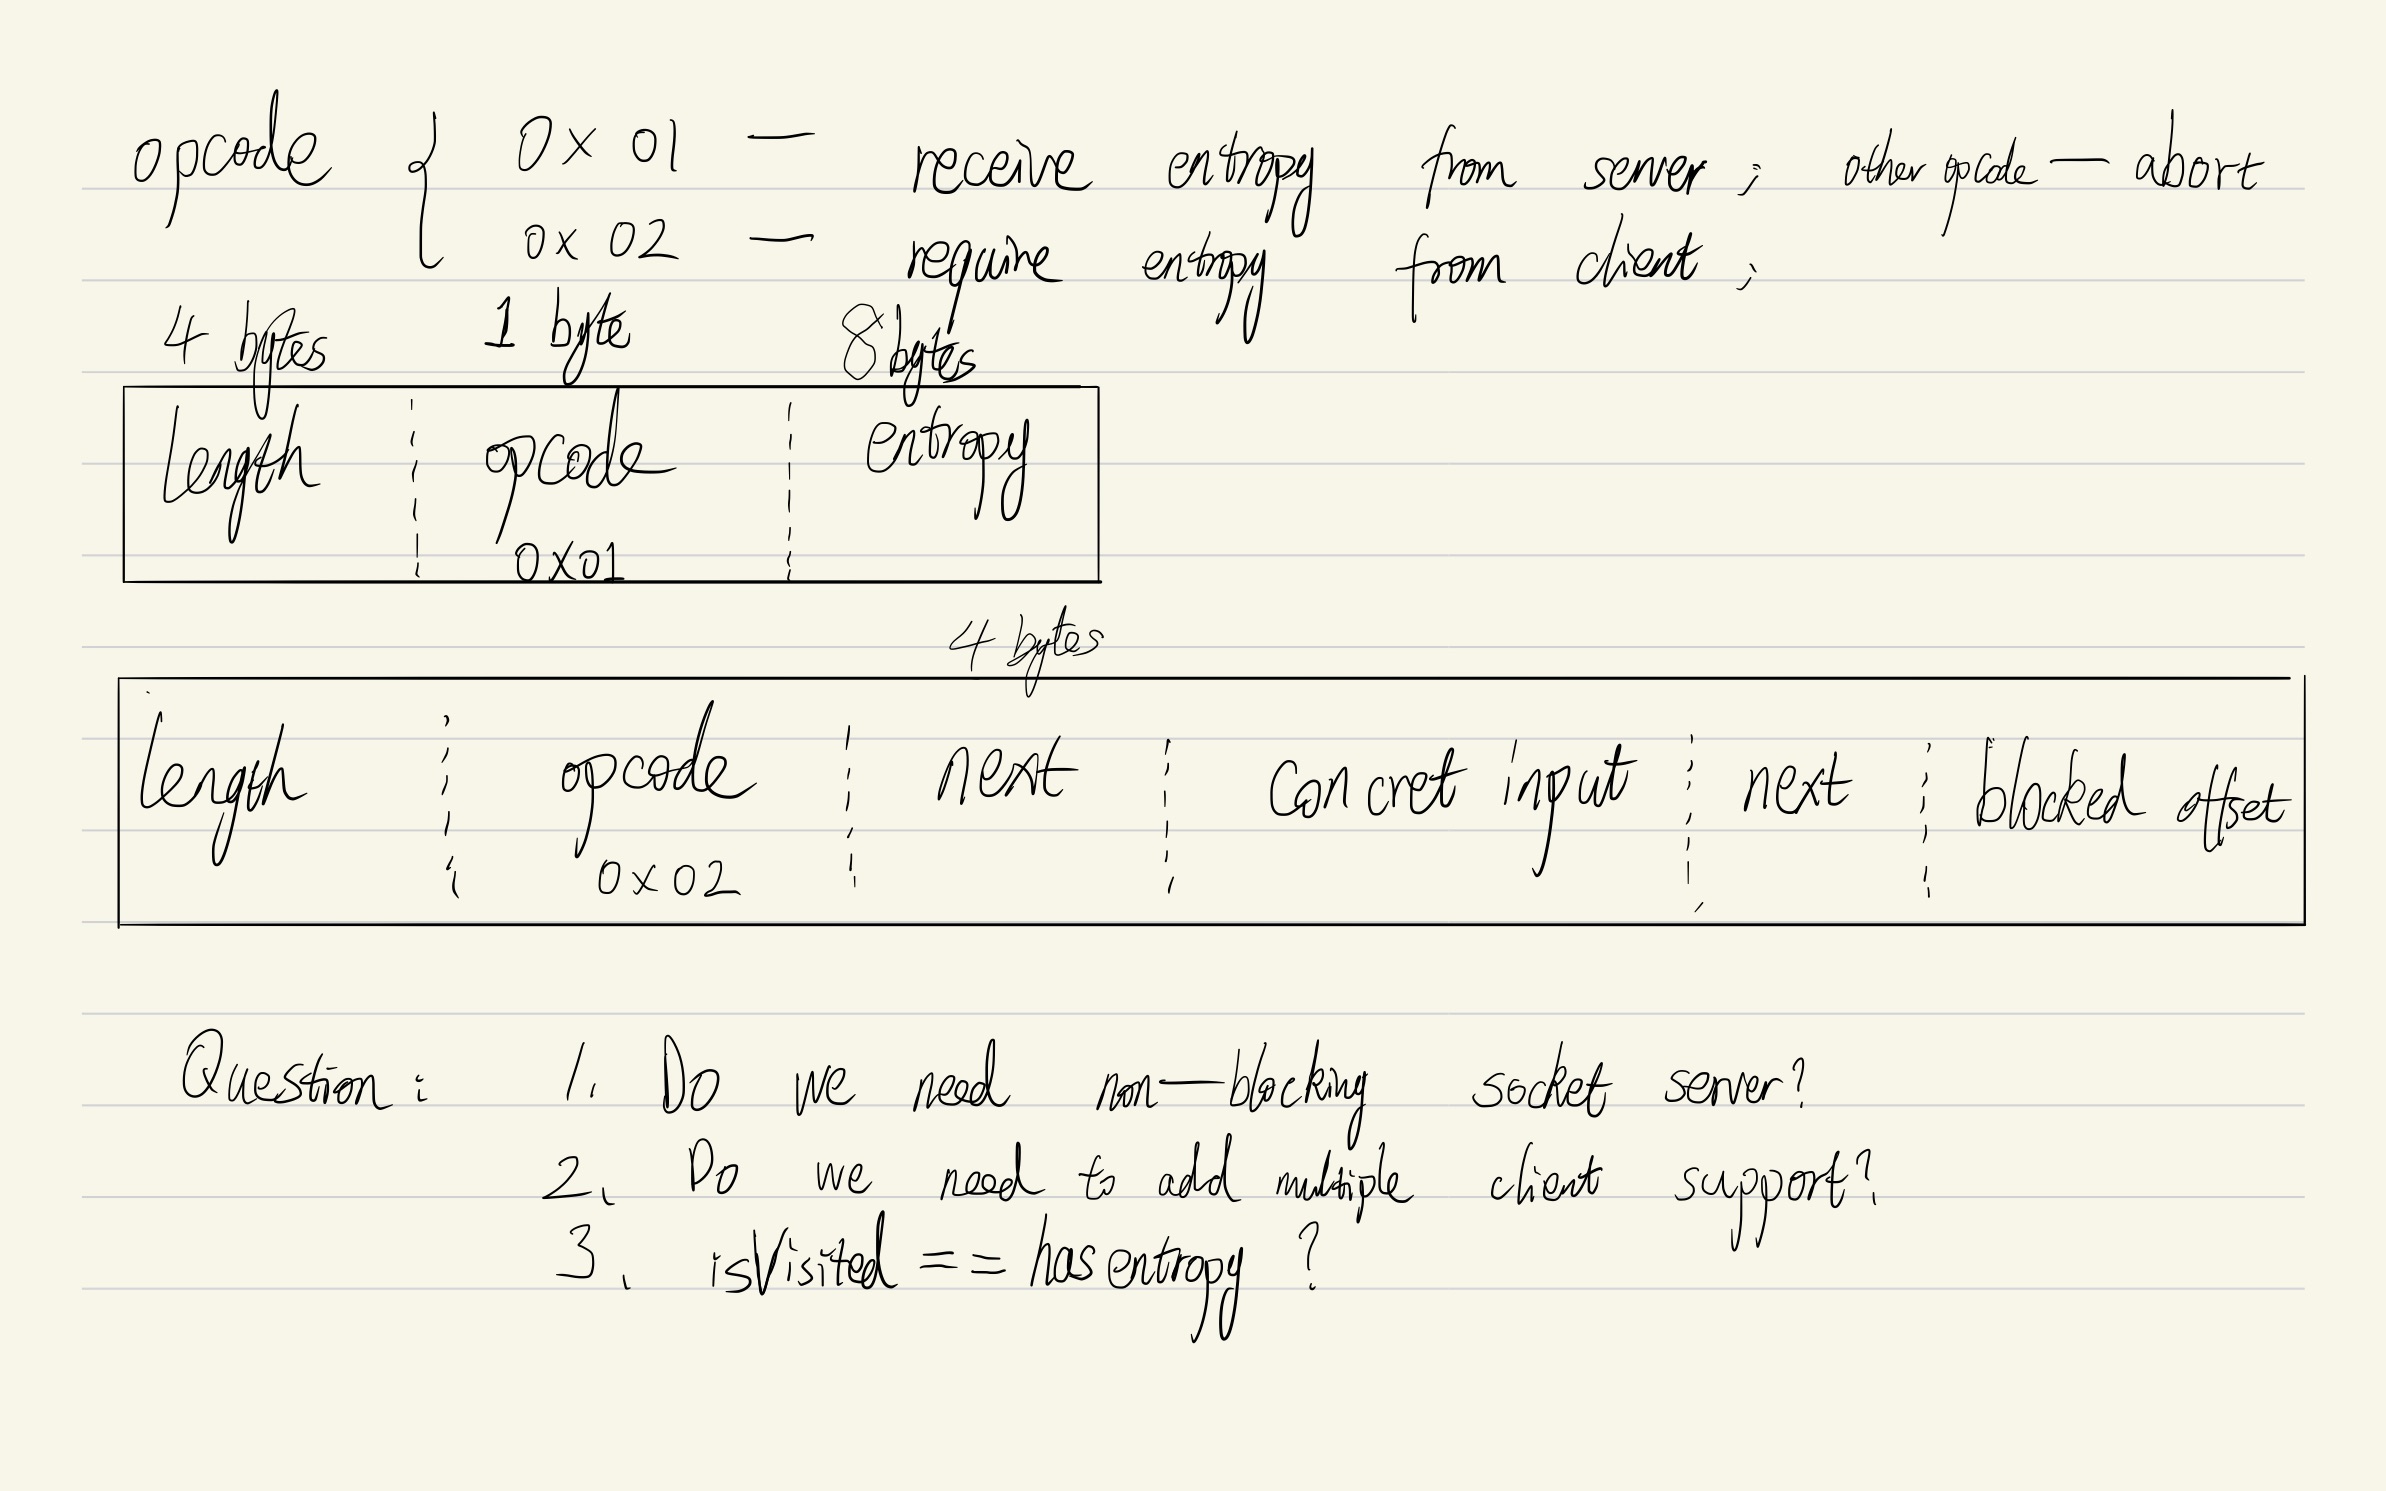 opcode { 0x01 — receive entropy from server; other opcode — abort
0x02 — require entropy from client;
4 bytes 1 byte 8 bytes
length opcode entropy
0x01
4 bytes
length opcode next Concret input next blocked offset
0x02
Question: 1. Do we need non-blocking socket server?
2. Do we need to add multiple client support?
3. isVisited == has entropy ?